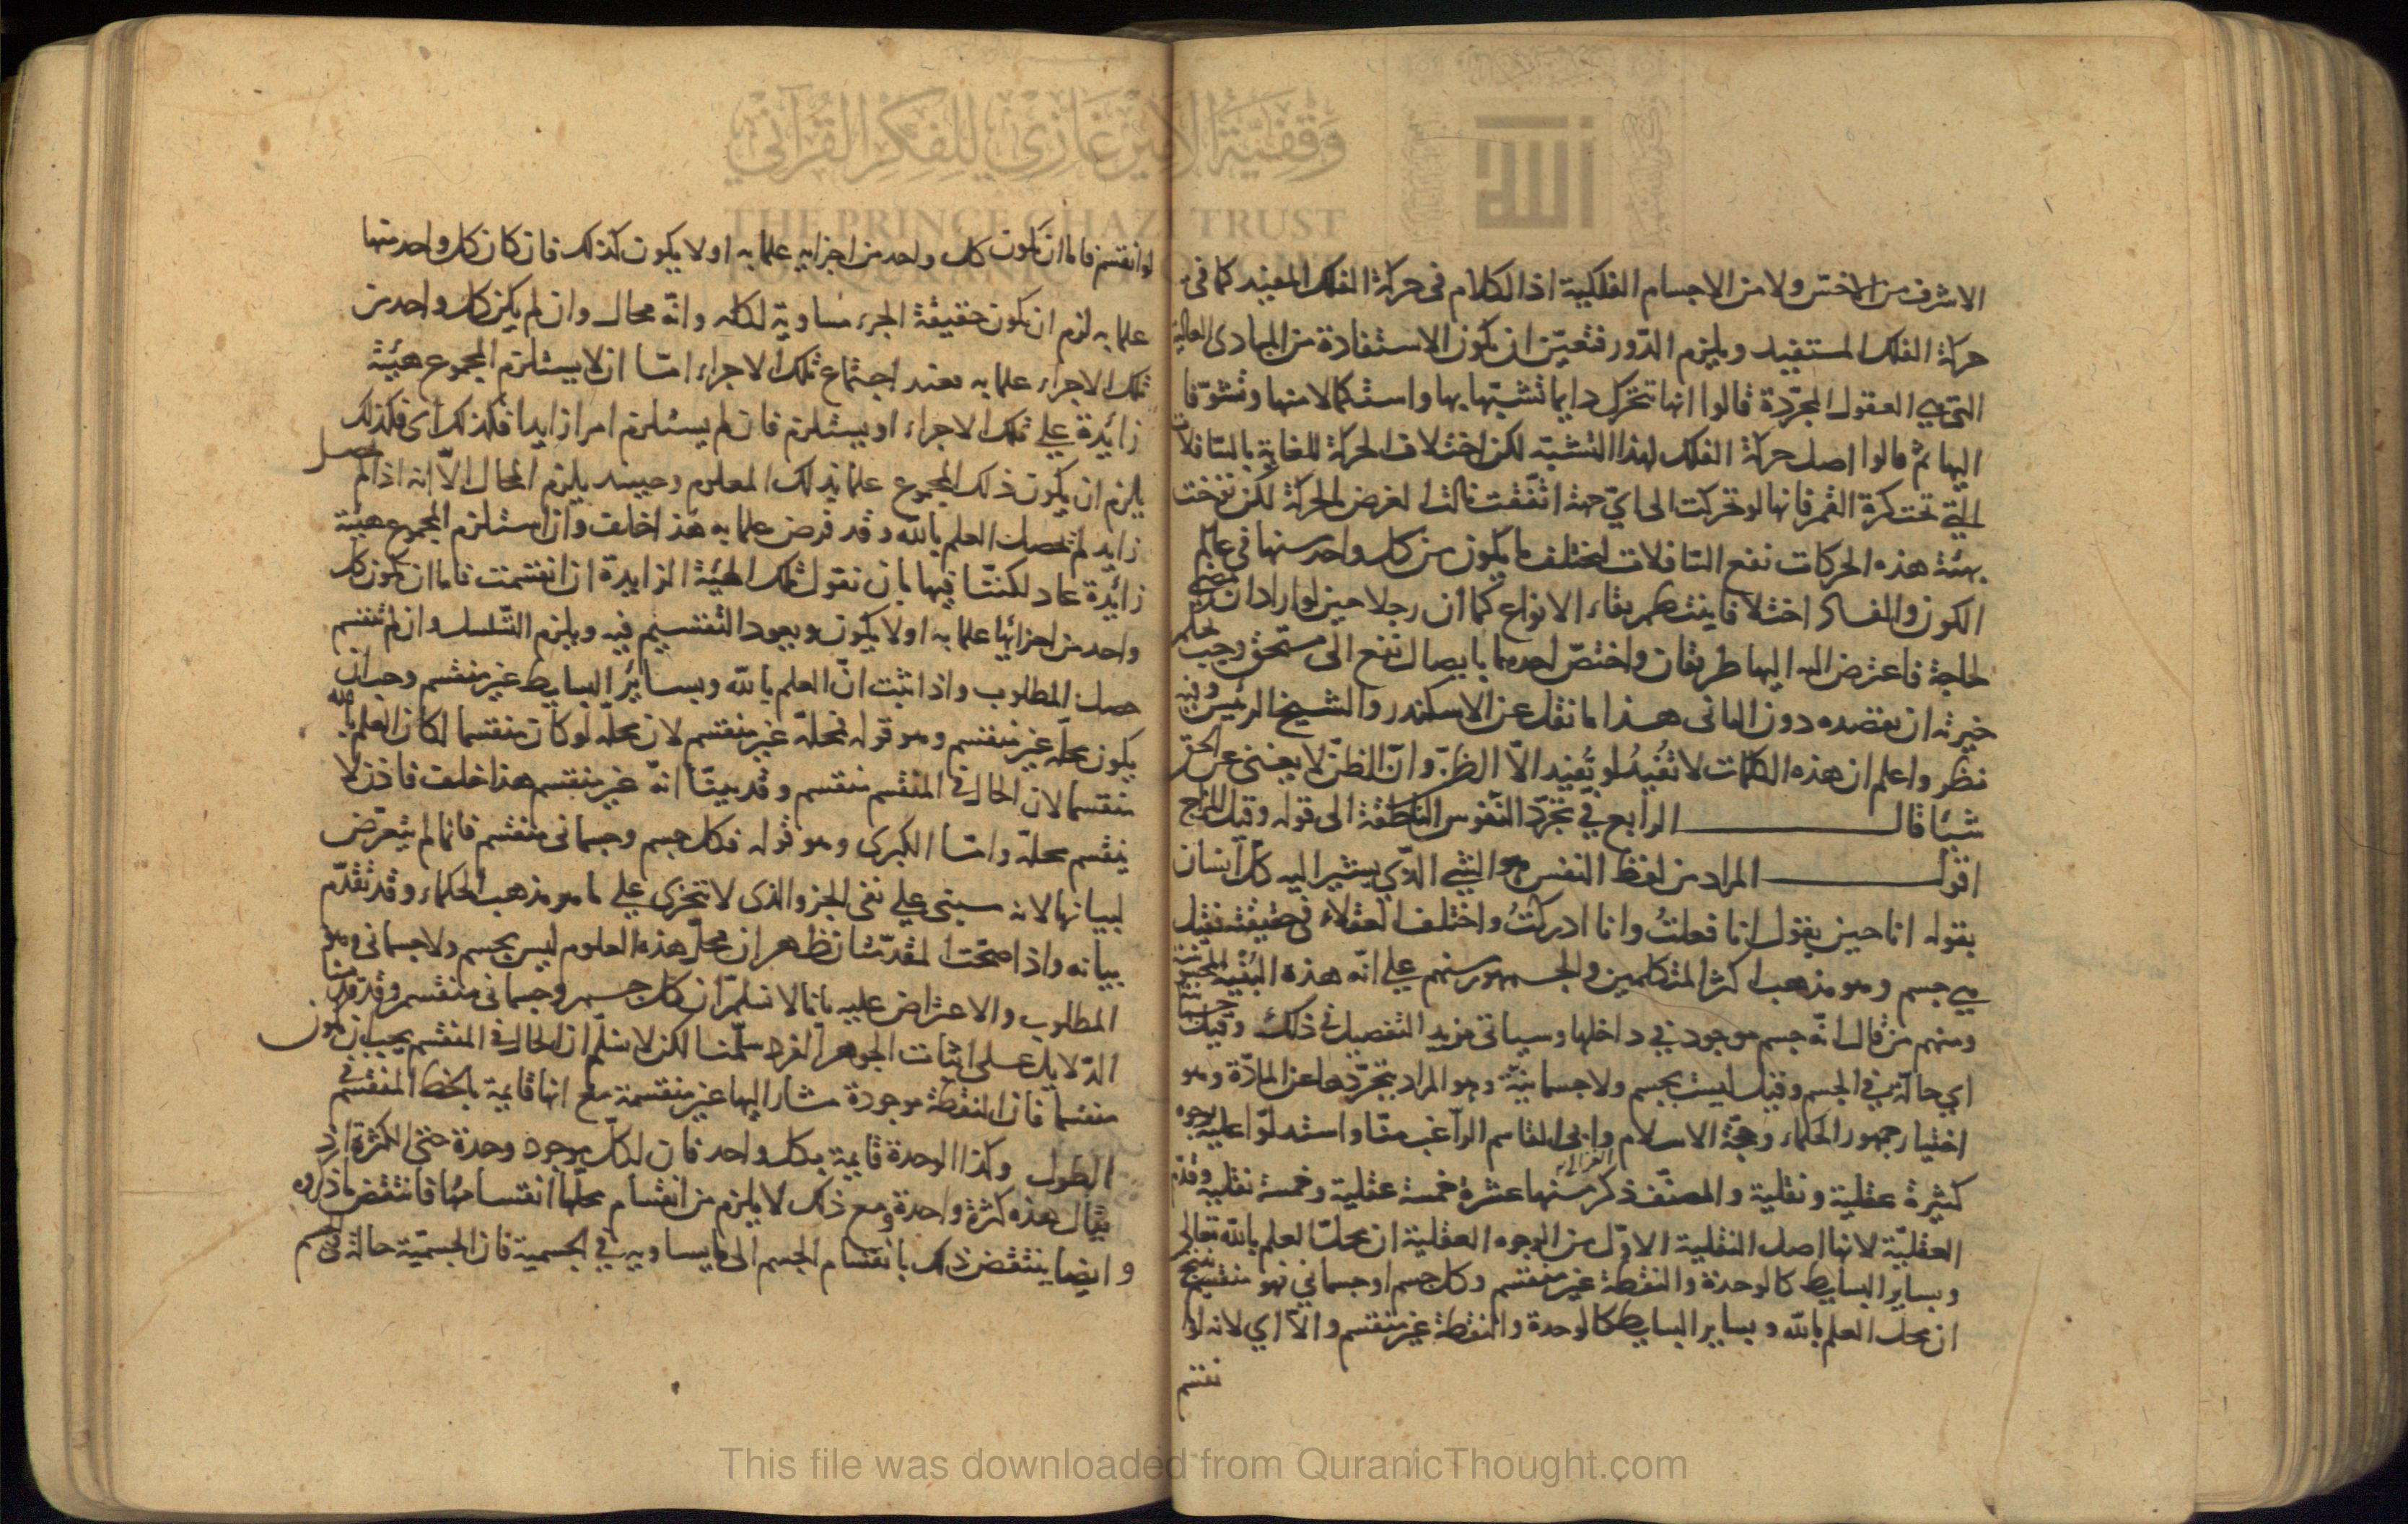 وقفية الأمير غازي للفكر القرآني
THE PRINCE GHAZI TRUST
FOR QURANIC THOUGHT
الاشرف من الاخس ولا من الاجسام الفلكية اذ الكلام فى حركة الفلك المفيد كما فى
حركة الفلك المستفيد ويلزم الدّور فتعيّن ان يكون الاستفادة من المبادى العالية
التى هي العقول المجرّدة قالوا انها تتحرك دايما تشبّها بها واستكمالا منها وتشوّقا
اليها ثم قالوا اصل حركة الفلك لهذا التشبّه لكن اختلاف الحركة للغاية بالسّافلات
التي تحت كرة القمر فانها لو تحركت الى ايّ جهة اتّفقت نالت الغرض بالحركة لكن
بهيئة هذه الحركات نفع السّافلات ليختلف ما يكون من كل واحد منها فى عالم
الكون والفساد اختلافا ينتظم بقاء الانواع كما ان رجلا خيّرا لو اراد ان يمضي
لحاجة فاعترض له اليها طريقان واختصّ احدهما بايصال نفع الى مستحق وجب لحكم
خيرته ان يقصده دون الثانى هذا ما نقل عن الاسكندر والشيخ الرئيس وفيه
نظر واعلم ان هذه الكلمات لا تُفيدُ لو تُفيد الاّ الظنّ وانّ الظنّ لا يغنى عن الحق
شيئا قال الرابع في تجرّد النّفوس الناطقة الى قوله وقبل المزاج
اقول المراد من لفظ النفس هو الشي الذّي يشير اليه كلّ انسان
بقوله انا حين يقول انا فعلتُ وانا ادركتُ واختلف العقلاء فى حقيقته فقيل
هي جسم وهو مذهب اكثر المتكلمين والجمهور منهم على انّه هذه البُنْية المحسوسة
ومنهم من قال انّه جسم موجود في داخلها وسياتى مزيد التفصيل فى ذلك وقيل جسمانية
اي حالّة في الجسم وقيل ليست بجسم ولا جسمانيّة وهو المراد بتجرّدها عن المادّة وهو
اختيار جمهور الحكماء وحجّة الاسلام وابى القاسم الراغب منّا واستدلوّا عليه بوجوه
الغزالى
كثيرة عقلية ونقلية والمصنّف ذكر منها عشرة خمسة عقلية وخمسة نقلية وقدّم
العقليّة لانها اصل النقلية الاوّل من الوجوه العقلية ان محلّ العلم بالله تعالى
وبساير البسايط كالوحدة والنقطة غير منقسم وكل جسم او جسماني فهو منقسم ينتج
ان محل العلم بالله وبساير البسايط كالوحدة والنقطة غير منقسم والاّ اي لانه لو
نقسم
لو انقسم فاما ان يكون كل واحد من اجزايه علما به او لا يكون كذلك فان كان كل واحد منها
علما به لزم ان يكون حقيقة الجزء مساوية لكله وانّه محال وان لم يكن كل واحد من
تلك الاجزاء علما به فعند اجتماع تلك الاجزاء امّا ان لا يستلزم المجموع هيئة
زائدة على تلك الاجزاء او يستلزم فان لم يستلزم امرا زايدا فكذلك اى فكذلك
يلزم ان يكون ذلك المجموع علما بذلك المعلوم وحينئذ يلزم المحال الاّ انه اذا لم يحصل
زايد لم تحصل العلم بالله وقد فرض علما به هذا خلف وان استلزم المجموع هيئة
زائدة عاد لكنّا فيها بان نقول تلك الهيئة الزايدة ان انقسمت فاما ان يكون كل
واحد من اجزائها علما به او لا يكون ويعود التقسيم فيه ويلزم التّسلسل وان لم تنقسم
حصل المطلوب واذا ثبت انّ العلم بالله وبسائر البسايط غير منقسم وجب ان
يكون محلّه غير منقسم وهو قوله فمحلّه غير منقسم لان محلّه لو كان منقسما لكان العلم بالله
منقسما لان الحال فى المنقسم منقسم وقد بيّنّا انّه غير منقسم هذا خلف فاذن لا
ينقسم محلّه وامّا الكبرى وهو قوله فكل جسم وجسمانى منقسم فانما لم يتعرّض
لبيانها لانه مبنى على نفى الجزو الذى لا يتجزى على ما هو مذهب الحكماء وقد تقدّم
بيانه واذا صحّت المقدّمتان ظهر ان محلّ هذه العلوم ليس بجسم ولا جسمانى وهو
المطلوب والاعتراض عليه بانا لا نسلمّ ان كل جسم وجسمانى منقسم وقد قدّمنا
الدّلايل على اثبات الجوهر الفرد سلّمنا لكن لا نسلّم ان الحال فى المنقسم يجب ان يكون
منقسما فان النقطة موجودة مشار اليها غير منقسمة مع انها قايمة بالخط المنقسم فى
الطول وكذا الوحدة قايمة بكل واحد فان لكلّ موجود وحدة حتى الكثرة اذ
يقال هذه كثرة واحدة ومع ذلك لا يلزم من انقسام محلّها انقسامها فانتقض ما ذكروه
وايضا ينتقض ذلك بانقسام الجسم الى ما يساويه في الجسمية فان الجسميّة حالة فى الجسم
This file was downloaded from QuranicThought.com